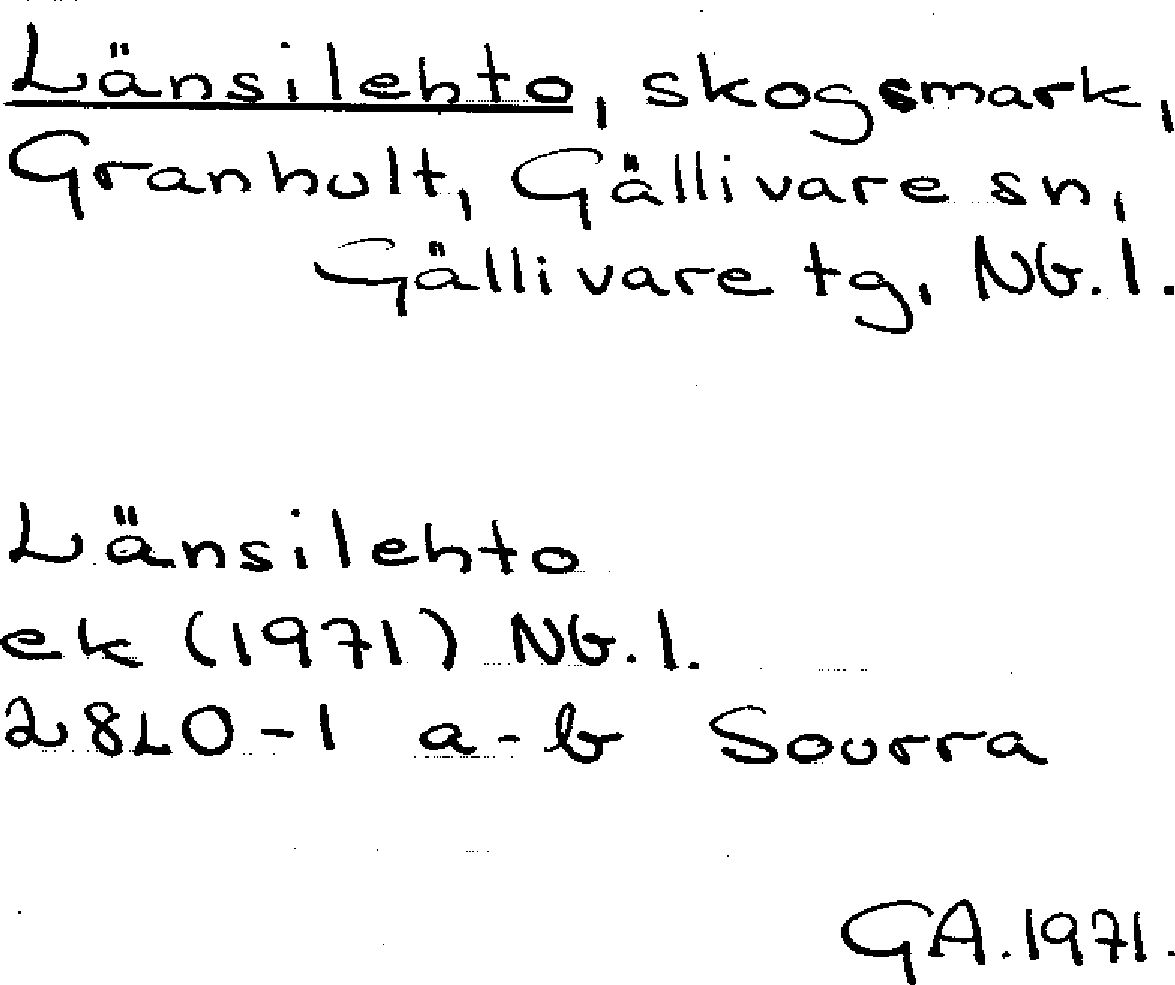 Länsilehto, skogsmark,
Granhult, Gällivare sn,
Gällivare tg, NG.l.
Länsilehto
ek (1971) NG.l.
28L0-1 a-b Sourra
GA.1971.